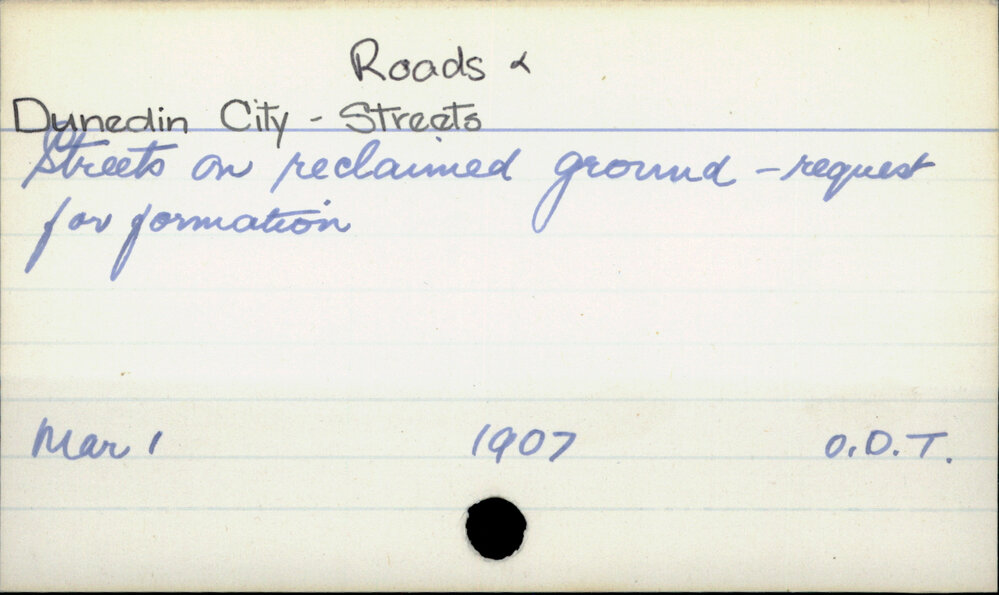 Roads &
Dunedin City - Streets
Streets on reclaimed ground - request
for formation
Mar 1 1907 O.D.T.